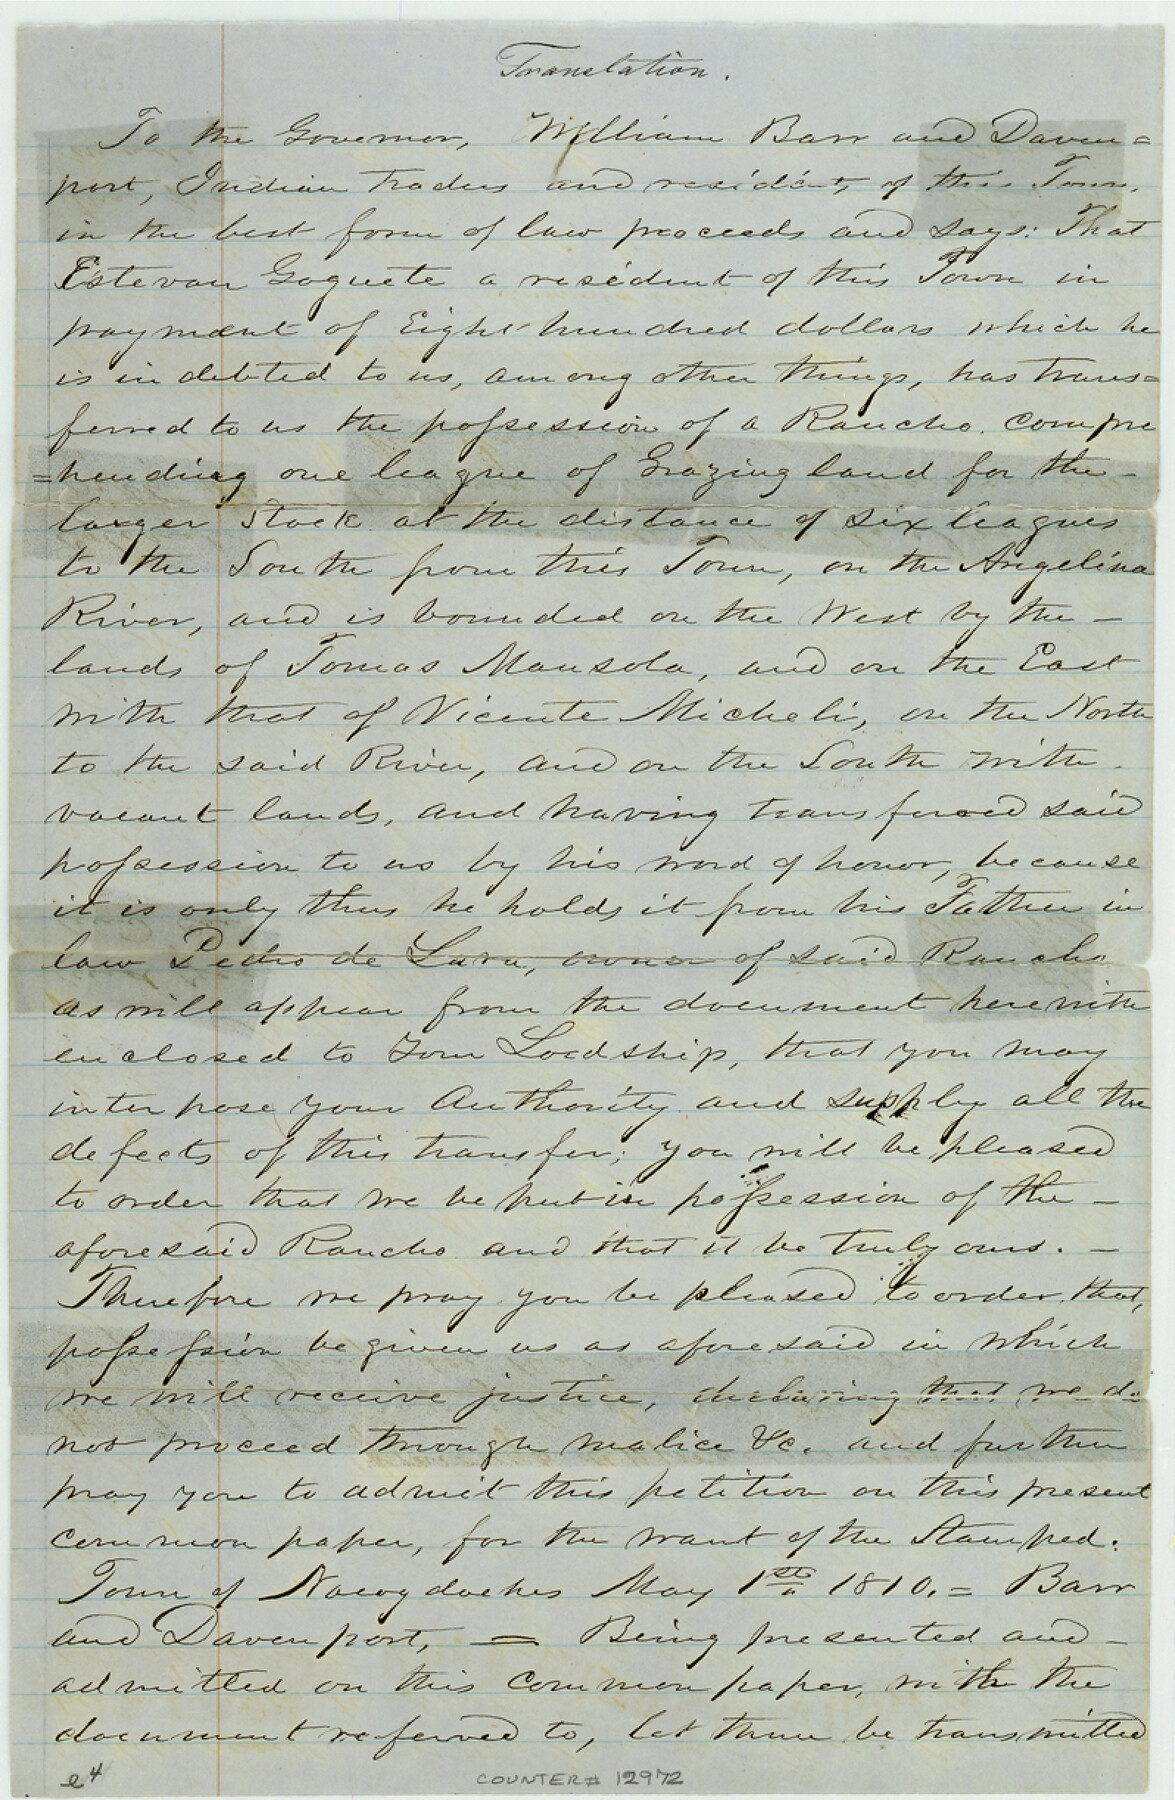 Translation.
To the Governor, William Barr and Daven=
port, Indian traders and resident, of this Town,
in the best form of law proceeds and says: That
Estevan Goguete a resident of this Town in
payment of Eight hundred dollars which he
is indebted to us, among other things, has trans=
ferred to us the possession of a Rancho. compre
=hending one league of Grazing land for the -
larger Stock at the distance of six leagues
to the South from this Town, on the Angelina
River, and is bounded on the West by the -
lands of Tomas Mansola, and on the East
with that of Vicente Micheli, on the North
to the said River, and on the South with
vacant lands, and having transferred said
possession to us by his word of honor, because
it is only thus he holds it from his Father in
law Pedro de Lara, owner of said Rancho
as will appear from the document herewith
enclosed to Your Lordship, that you may
interpose your Authority and supply all the
defects of this transfer; you will be pleased
to order that we be put in possession of the -
aforesaid Rancho and that it be truly ours. -
Therefore we pray you be pleased to order that,
possession be given us as aforesaid in which
we will receive justice, declaring that we do
not proceed through malice &c. and further
pray you to admit this petition on this present
common paper, for the want of the Stamped.
Town of Nacogdoches May 1st 1810. = Barr
and Davenport, = Being presented and -
admitted on this common paper, with the
document referred to, let them be transmitted
e4
COUNTER# 12972